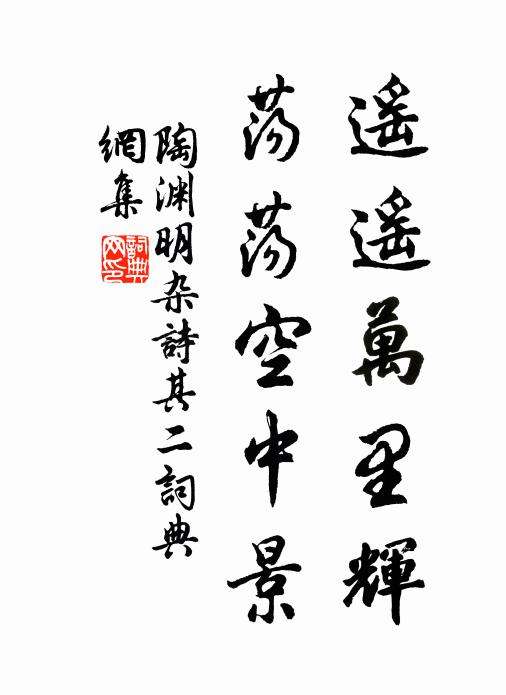 遥遥萬里輝
蕩蕩空中景
陶渊明杂詩其二詞典
網集
詞典網印